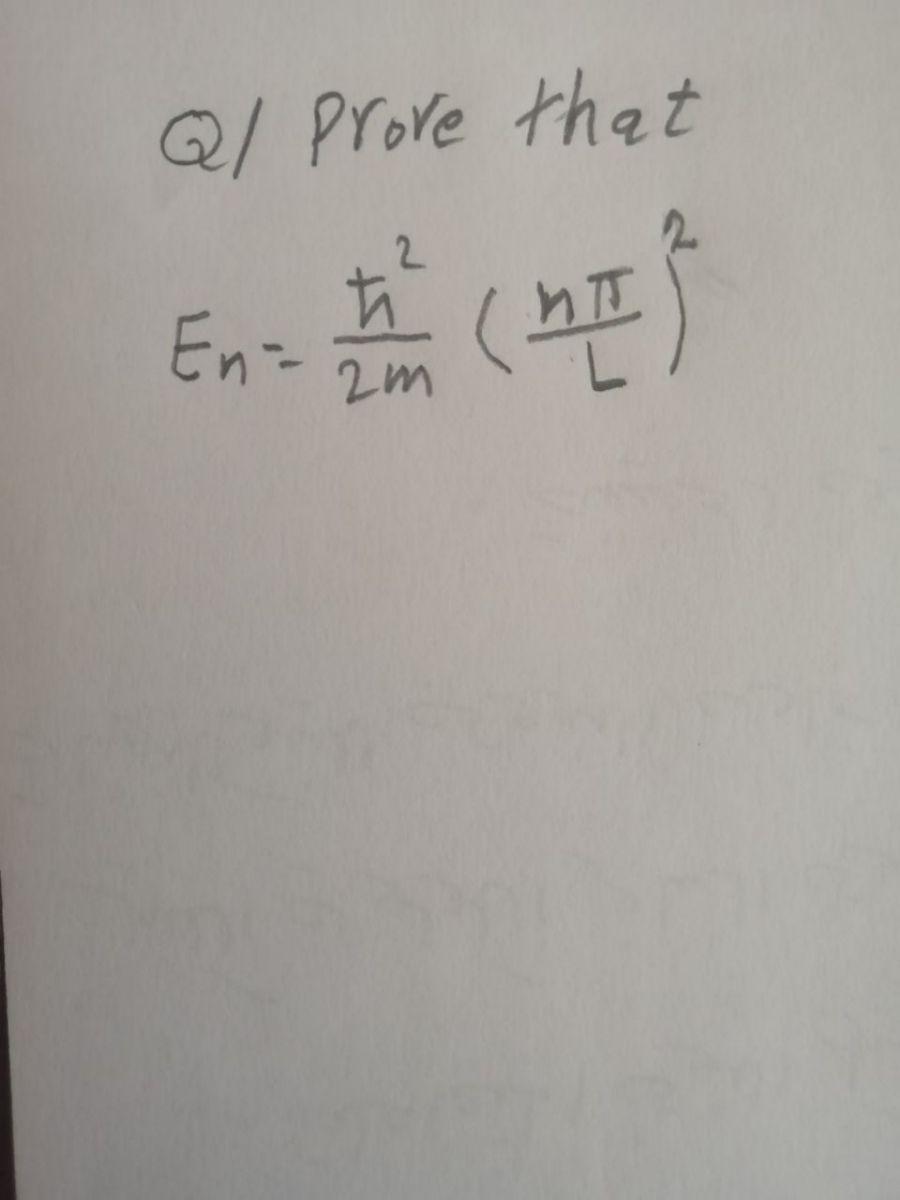 Q/ Prove that
En = ħ²/2m (nπ/L)²